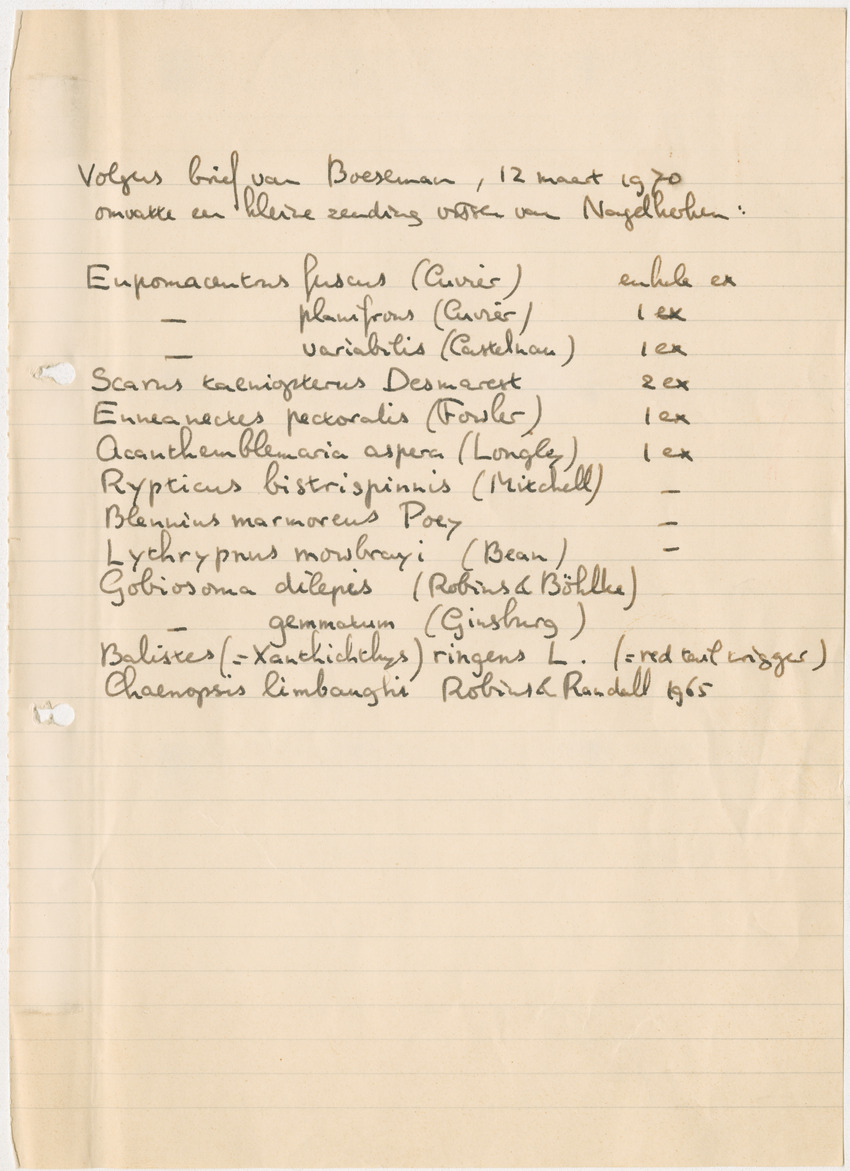 Volgens brief van Boeseman, 12 maart 1970
omvatte een kleine zending vissen van Nagelkerken:
Eupomacentrus fuscus (Cuvier) enkele ex
— planifrons (Cuvier) 1 ex
— variabilis (Castelnau) 1 ex
Scarus taeniopterus Desmarest 2 ex
Enneanectes pectoralis (Fowler) 1 ex
Acanthemblemaria aspera (Longley) 1 ex
Rypticus bistrispinnis (Mitchell) —
Blennius marmoreus Poey —
Lythrypnus mowbrayi (Bean) —
Gobiosoma dilepis (Robins & Böhlke)
— gemmatum (Ginsburg)
Balistes (= Xanthichthys) ringens L. (= red tail trigger)
Chaenopsis limbaughi Robins & Randall 1965